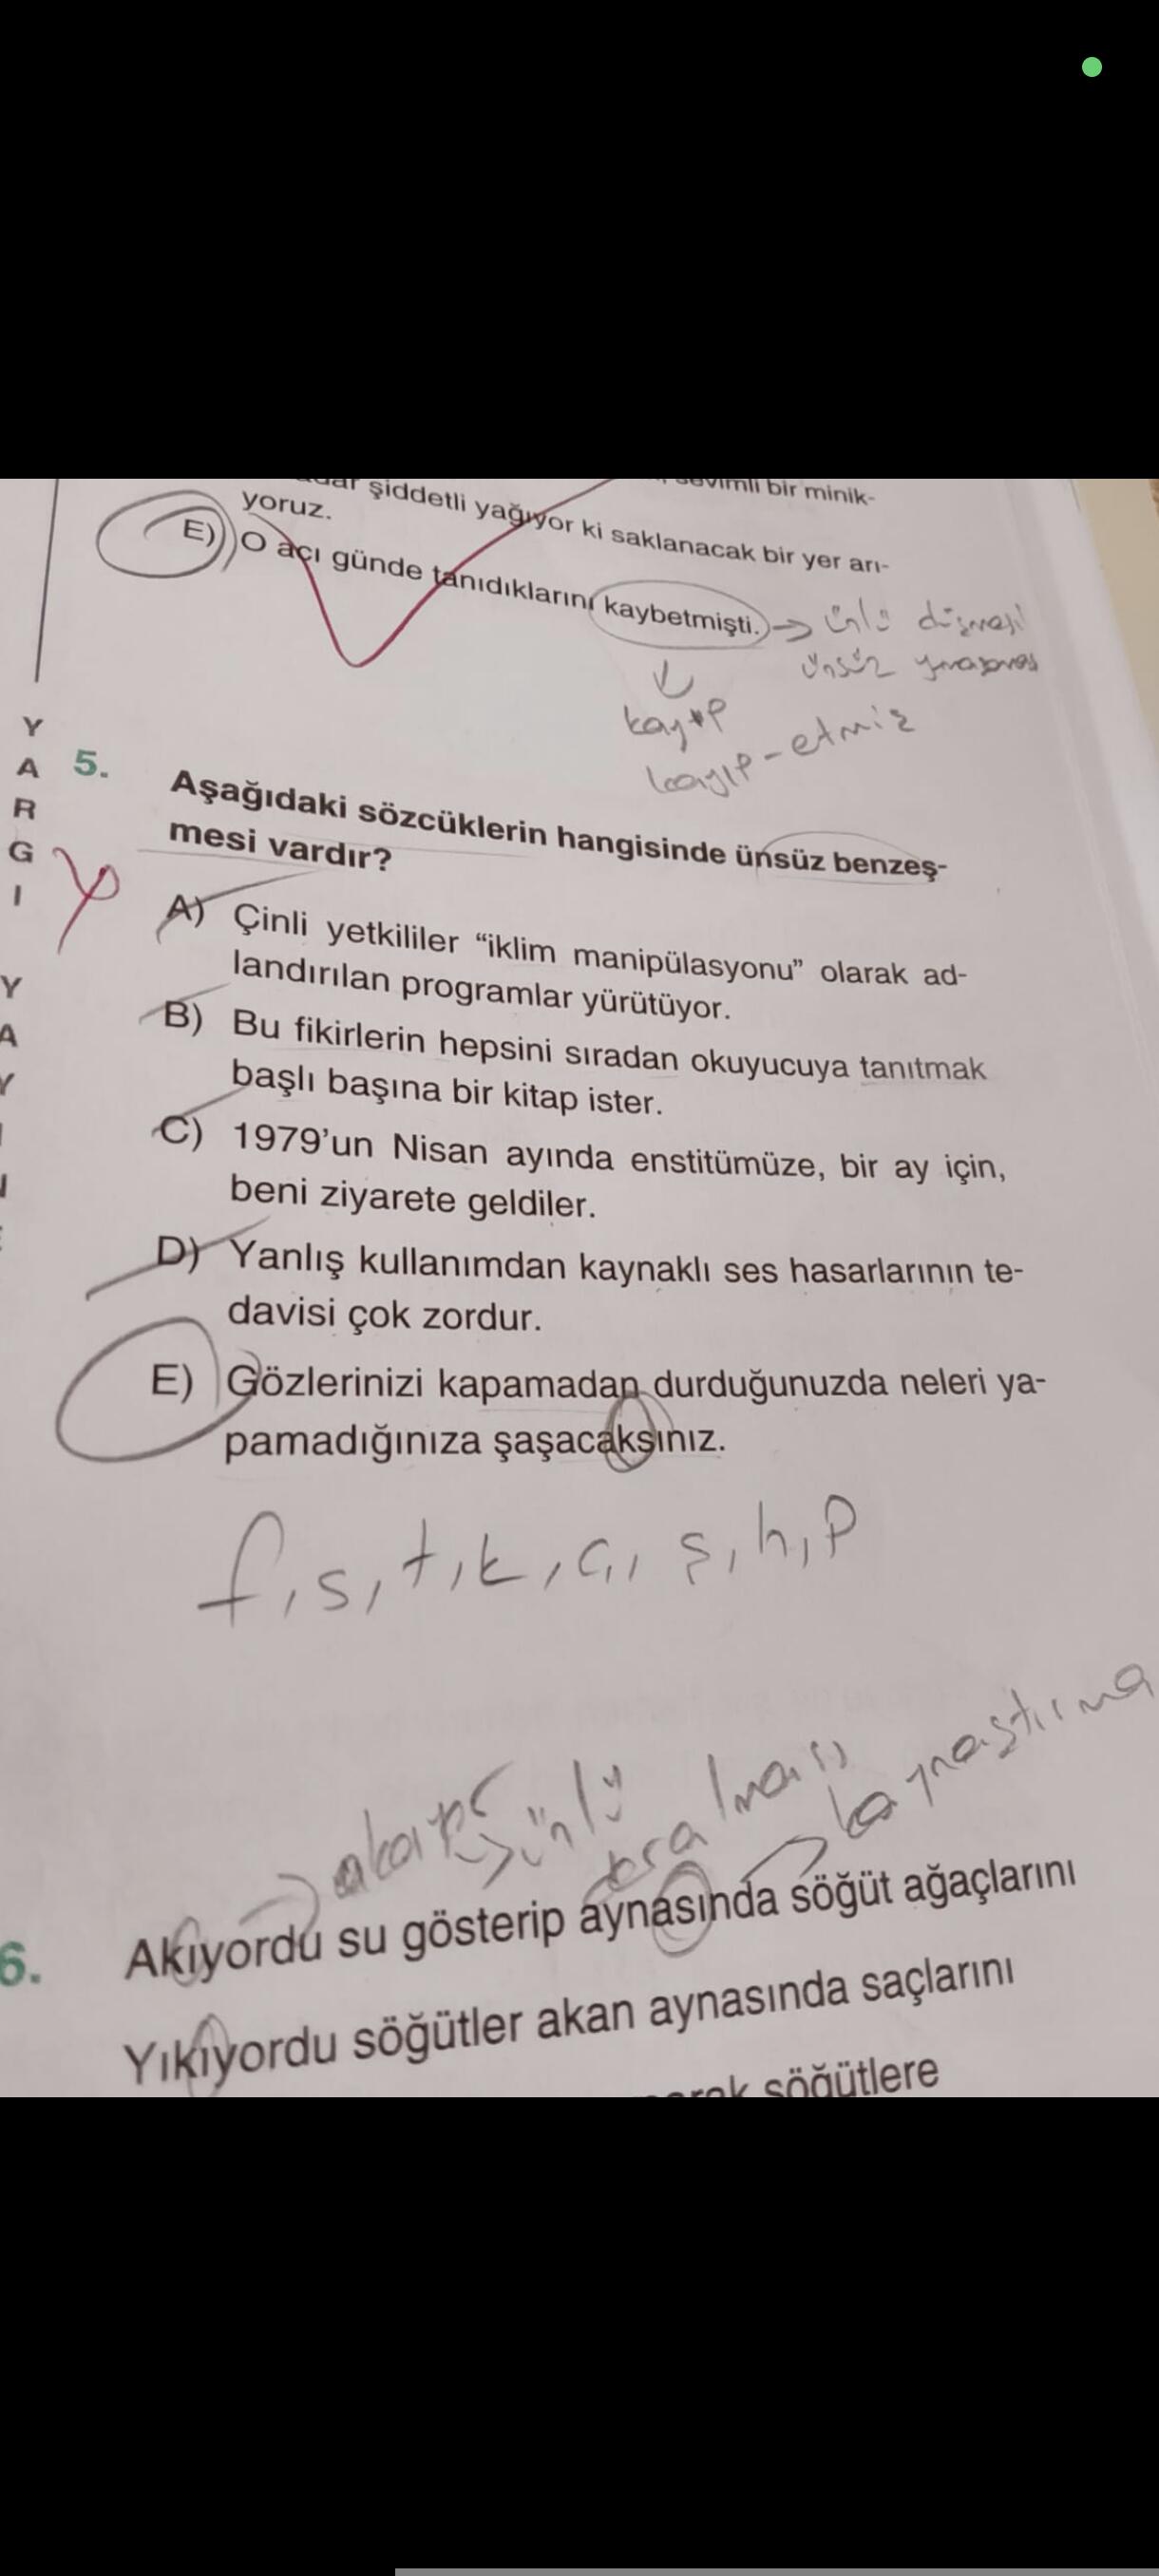 şiddetli yağıyor ki saklanacak bir yer arı-
sevimli bir minik-
yoruz.
E) O acı günde tanıdıklarını kaybetmişti. → ünlü düşmesi
ünsüz yumuşaması
kayıp
kayıp-etmiş
YARGI
YAYI
5. Aşağıdaki sözcüklerin hangisinde ünsüz benzeş-
mesi vardır?
A) Çinli yetkililer “iklim manipülasyonu” olarak ad-
landırılan programlar yürütüyor.
B) Bu fikirlerin hepsini sıradan okuyucuya tanıtmak
başlı başına bir kitap ister.
C) 1979’un Nisan ayında enstitümüze, bir ay için,
beni ziyarete geldiler.
D) Yanlış kullanımdan kaynaklı ses hasarlarının te-
davisi çok zordur.
E) Gözlerinizi kapamadan durduğunuzda neleri ya-
pamadığınıza şaşacaksınız.
f, s, t, k, ç, ş, h, p
ünlü
kaynaştırma
6. Akıyordu su gösterip aynasında söğüt ağaçlarını
Yıkıyordu söğütler akan aynasında saçlarını
söğütlere